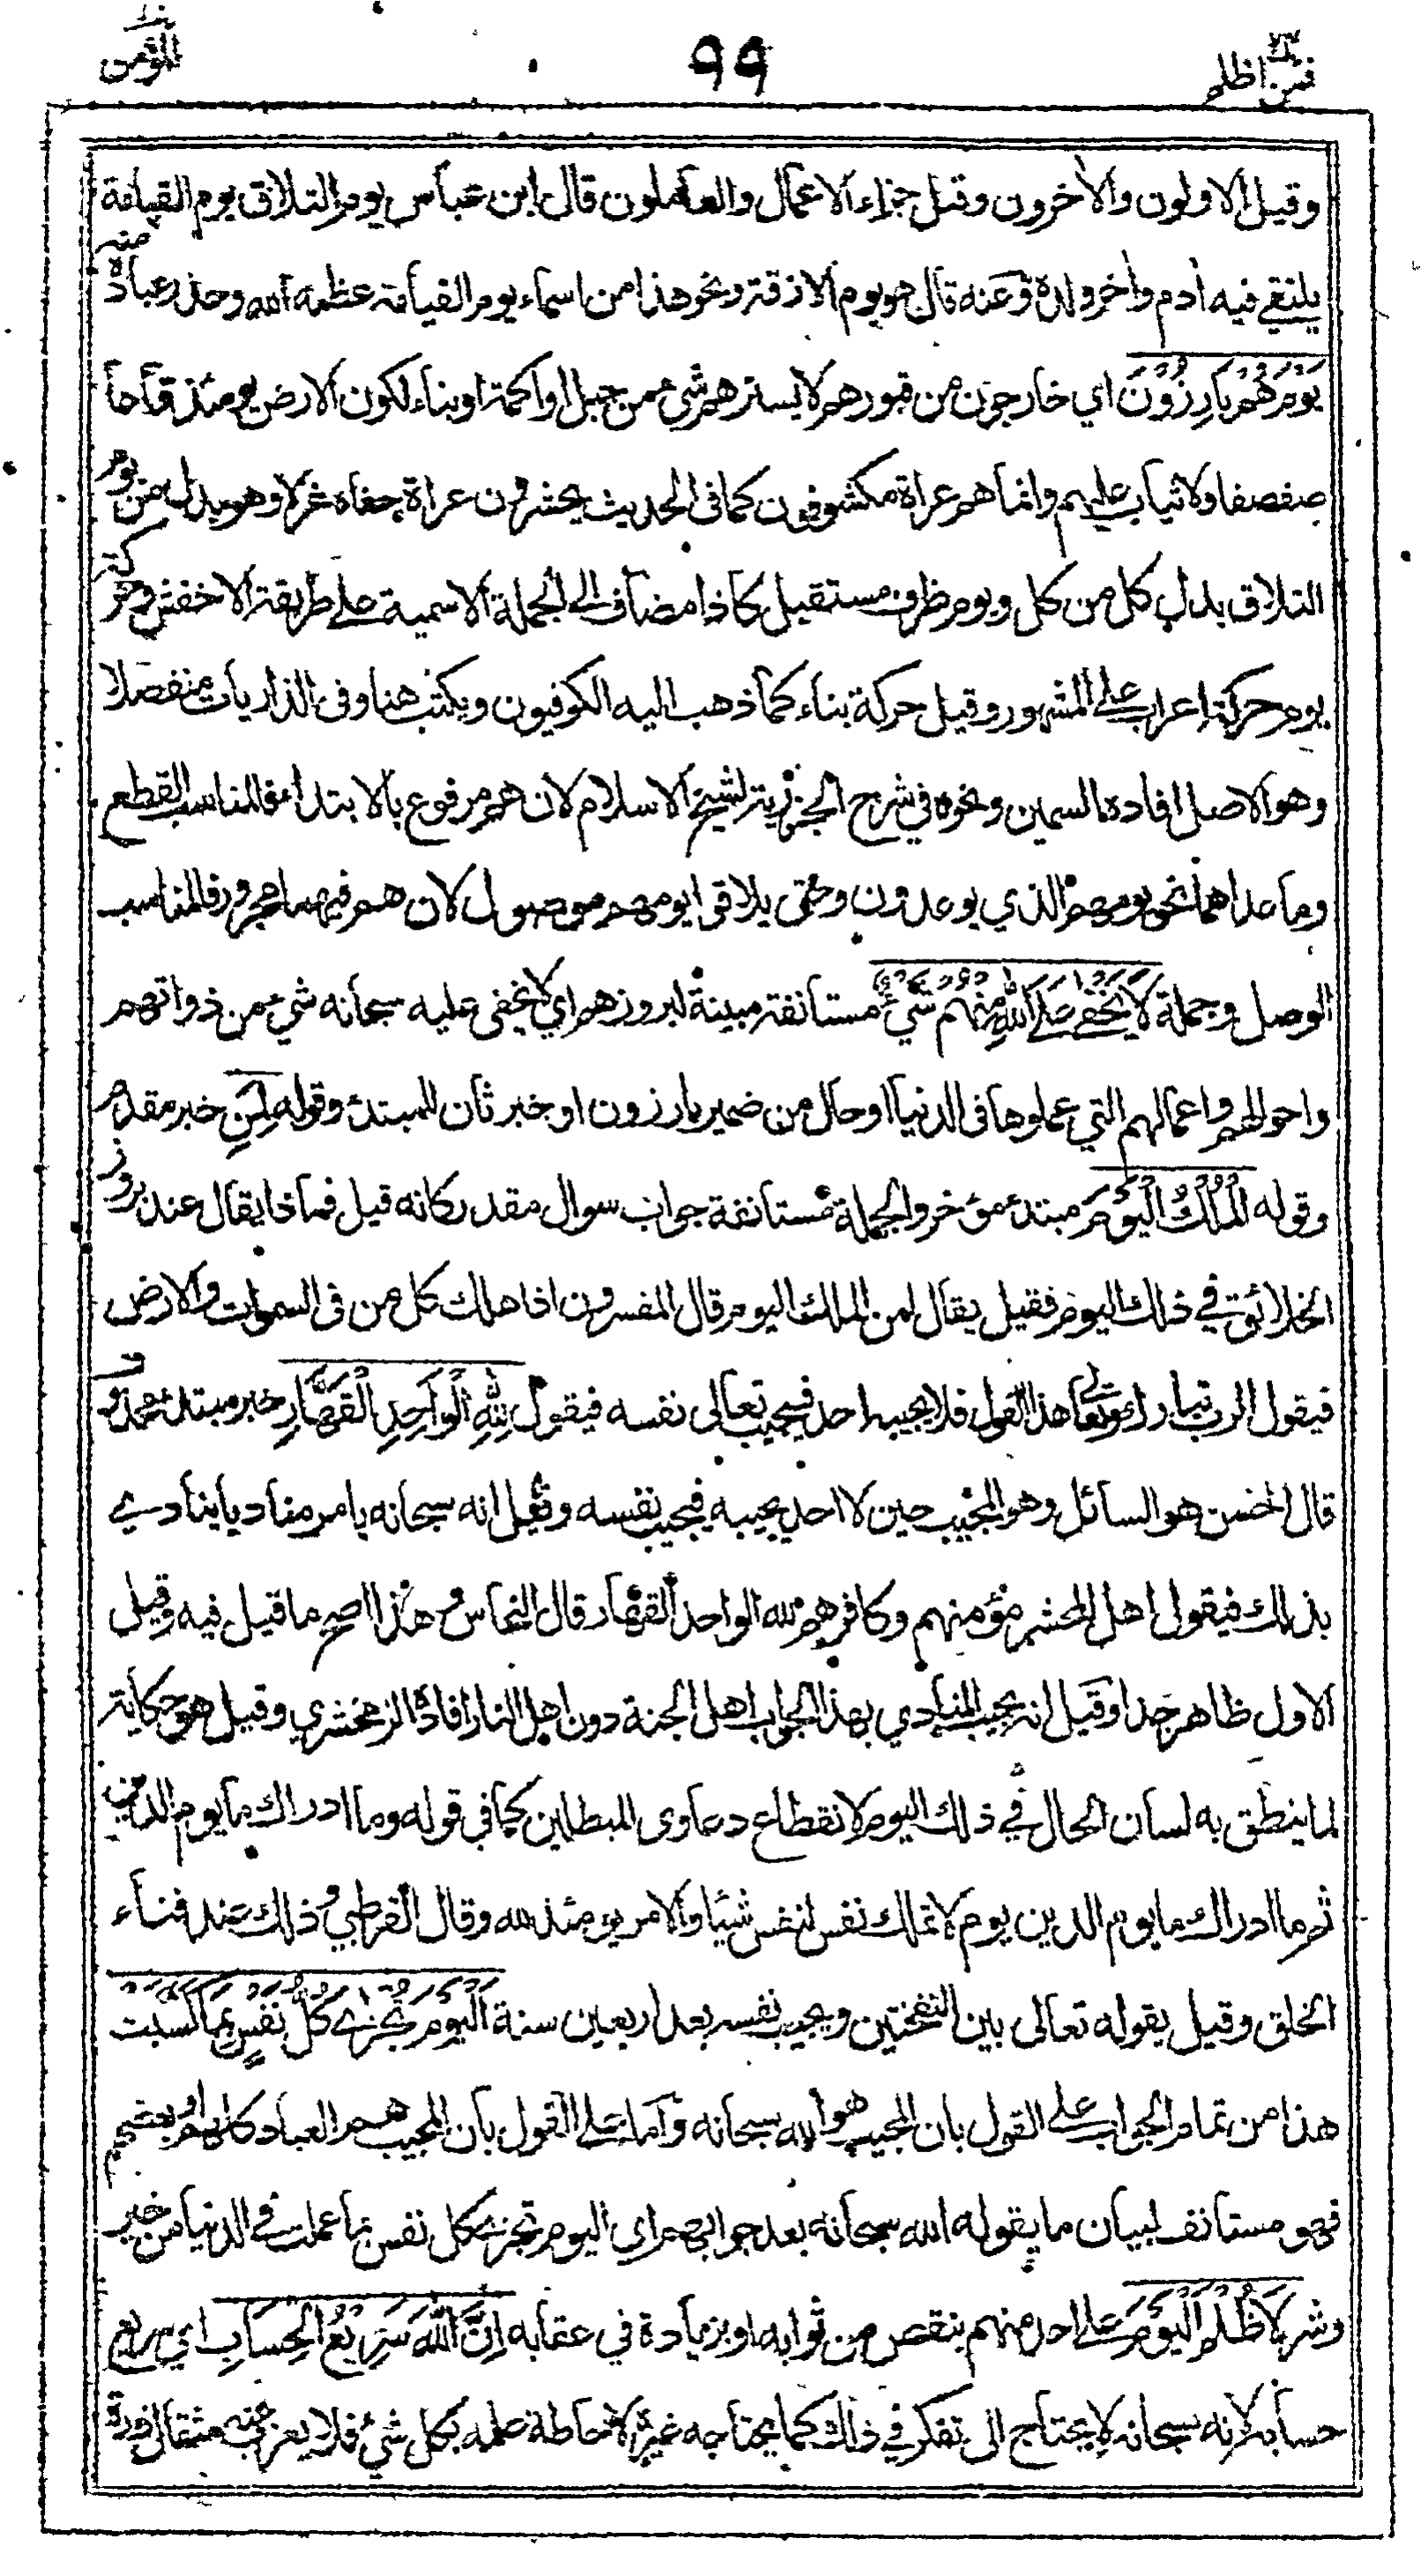 فمن اظلم ٢٤
٩٩
المؤمن
وقيل الاولون والأخرون وقيل جزاء الاعمال والعاملون قال ابن عباس يوم التلاق يوم القيامة
يلتقي فيه أدم وأخر ولده وعنه قال هو يوم الازفة ونحو هذا من اسماء يوم القيامة عظمه الله وحذر عباده منه
يَوْمَ هُمْ بَارِزُوْنَ اي خارجون من قبورهم لا يسترهم شيء من جبل او اكمة او بناء لكون الارض يومئذ قاعا
صفصفا ولا ثياب عليهم وانما هم عراة مكشوفون كما فى الحديث يحشرون عراة حفاة غرلا وهو بدل من يوم
التلاق بدل كل من كل ويوم ظرف مستقبل كاذا مضاف الى الجملة الاسمية على طريقة الاخفش وحركة
يوم حركة اعراب على المشهور وقيل حركة بناء كما ذهب اليه الكوفيون ويكتب هنا وفى الذاريات منفصلا
وهو الاصل افاده السمين ونحوه في شرح الجزرية لشيخ الاسلام لان هم مرفوع بالابتداء فالمناسب القطع
وما عداهما نحو يومهم الذي يوعدون وحتى يلاقوا يومهم موصول لان هم فيهما مجرور فالمناسب
الوصل وجملة لَا يَخْفٰى عَلَى اللهِ مِنْهُمْ شَيْءٌ مستأنفة مبينة لبروزهم اي لا يخفى عليه سبحانه شيء من ذواتهم
واحوالهم واعمالهم التي عملوها فى الدنيا او حال من ضمير بارزون او خبر ثان للمبتدء وقوله لِمَنِ خبر مقدم
وقوله الْمُلْكُ الْيَوْمَ مبتدء مؤخر والجملة مستأنفة جواب سوال مقدر كانه قيل فماذا يقال عند بروز
الخلائق في ذلك اليوم فقيل يقال لمن الملك اليوم قال المفسرون اذا هلك كل من فى السموات والارض
فيقول الرب تبارك وتعالى هذا القول فلا يجيبه احد فيجيب تعالى نفسه فيقول لِلّٰهِ الْوَاحِدِ الْقَهَّارِ خبر مبتدء محذوف
قال الحسن هو السائل وهو المجيب حين لا احد يجيبه فيجيب نفسه وقيل انه سبحانه يامر مناديا ينادي
بذلك فيقول اهل المحشر مؤمنهم وكافرهم لله الواحد القهار قال النحاس وهذا اصح ما قيل فيه وقيل
الاول ظاهر جدا وقيل انه يجيب المنادي بهذا الجواب اهل الجنة دون اهل النار افاده الزمخشري وقيل هو حكاية
لما ينطق به لسان الحال في ذلك اليوم لانقطاع دعاوى المبطلين كما في قوله وما ادراك ما يوم الدين
ثم ما ادراك ما يوم الدين يوم لا تملك نفس لنفس شيئا والامر يومئذ لله وقال القرطبي وذلك عند فناء
الخلق وقيل يقوله تعالى بين النفختين ويجيب نفسه بعد اربعين سنة اَلْيَوْمَ تُجْزٰى كُلُّ نَفْسٍ بِمَا كَسَبَتْ
هذا من تمام الجواب على القول بأن المجيب هو الله سبحانه وأما على القول بأن المجيب هم العباد كلهم او بعضهم
فهو مستأنف لبيان ما يقوله الله سبحانه بعد جوابهم اي اليوم تجزى كل نفس بما عملت في الدنيا من خير
وشر لَا ظُلْمَ الْيَوْمَ على احد منهم بنقص من ثوابه او بزيادة في عقابه اِنَّ اللهَ سَرِيْعُ الْحِسَابِ اي سريع
حسابه لانه سبحانه لا يحتاج الى تفكر في ذلك كما يحتاجه غيره لاحاطة علمه بكل شيء فلا يعزب عنه مثقال ذرة